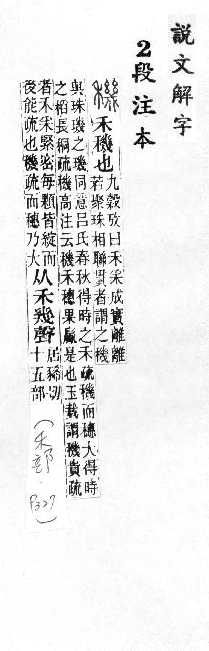 說文解字
2段注本
穖 禾穖也 九穀攷曰禾采成實離離
若聚珠相聯貫者謂之穖
與珠璣之璣同意呂氏春秋得時之禾疏穖而穗大得時
之稻長稠疏穖高注云穖禾穗果羸是也玉裁謂穖貴疏
者禾采緊密每顆皆綻而
後能疏也穖疏而穗乃大
从禾幾聲 居狶切
十五部
(禾部. P327)